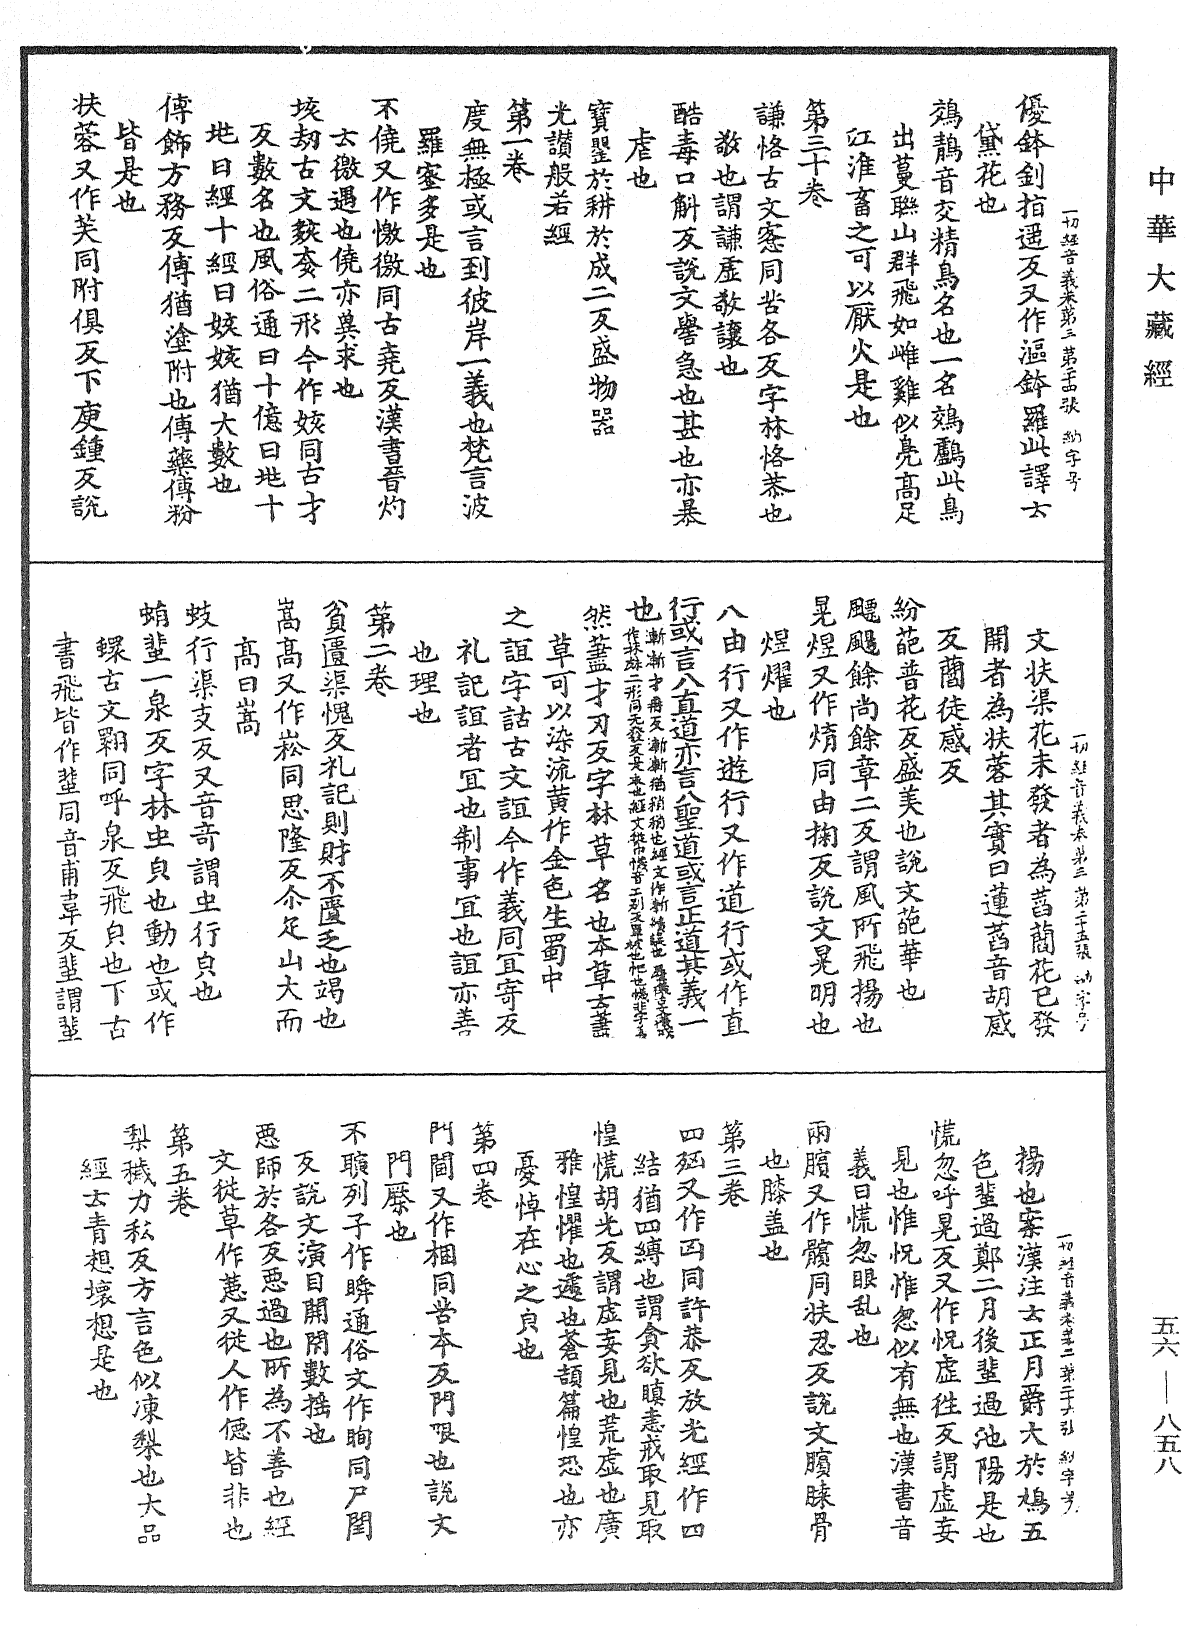 中華大藏經
一切經音義卷第三 第二十四張 納字号
優鉢釗拍遥反又作漚鉢羅此譯云
黛花也
鵁鶄音交精鳥名也一名鵁鸕此鳥
出蔓聯山群飛如雌雞似鳧高足
江淮畜之可以厭火是也
第三十卷
謙恪古文愙同苦各反字林恪恭也
敬也謂謙虚敬讓也
酷毒口斛反說文嚳急也甚也亦暴
虐也
寶罌於耕於成二反盛物器
光讃般若經
第一卷
度無極或言到彼岸一義也梵言波
羅蜜多是也
不僥又作憿徼同古堯反漢書晉灼
云徼遇也僥亦兾求也
垓劫古文奒㚊二形今作姟同古才
反數名也風俗通曰十億曰兆十
兆曰經十經曰姟姟猶大數也
傅飾方務反傅猶塗附也傅藥傅粉
皆是也
扶蓉又作芙同附俱反下庾鍾反說
一切經音義卷第三 第二十五張 納字号
文扶渠花未發者為菡䕞花已發
開者為扶蓉其實曰蓮菡音胡感
反䕞徒感反
紛葩普花反盛美也說文葩華也
飃颺餘尚餘章二反謂風所飛揚也
晃煜又作焴同由掬反說文晃明也
煜燿也
八由行又作遊行又作道行或作直
行或言八直道亦言八聖道或言正道其義一
也
然藎才刃反字林草名也本草云藎
草可以染流黄作金色生蜀中
之誼字詁古文誼今作義同冝寄反
礼記誼者冝也制事冝也誼亦善
也理也
第二卷
貧匱渠愧反礼記則財不匱乏也竭也
嵩高又作崧同思隆反尒疋山大而
高曰嵩
蚑行渠支反又音竒謂虫行皃也
蜎蜚一泉反字林虫皃也動也或作
蠉古文翾同呼泉反飛皃也下古
書飛皆作蜚同音甫韋反蜚謂蜚
一切經音義卷第三 第二十六張 納字号
揚也案漢注云正月爵大於鳩五
色蜚過鄭二月後蜚過池陽是也
慌忽呼晃反又作怳虚往反謂虚妄
見也惟怳惟忽似有無也漢書音
義曰慌忽眼乱也
兩臏又作髕同扶忍反說文臏膝骨
也膝盖也
第三卷
四㓙又作凶同許恭反放光經作四
結猶四縛也謂貪欲瞋恚戒取見取
惶慌胡光反謂虚妄見也荒虚也廣
雅惶懼也遽也蒼頡篇惶恐也亦
憂悼在心之皃也
第四卷
門閫又作梱同苦本反門限也說文
門橜也
不矌列子作瞬通俗文作眴同尸閏
反說文演目開閉數摇也
惡師於各反惡過也所為不善也經
文從草作蕙又從人作僡皆非也
第五卷
梨穢力私反方言色似凍梨也大品
經云青想壞想是也
五六—八五八